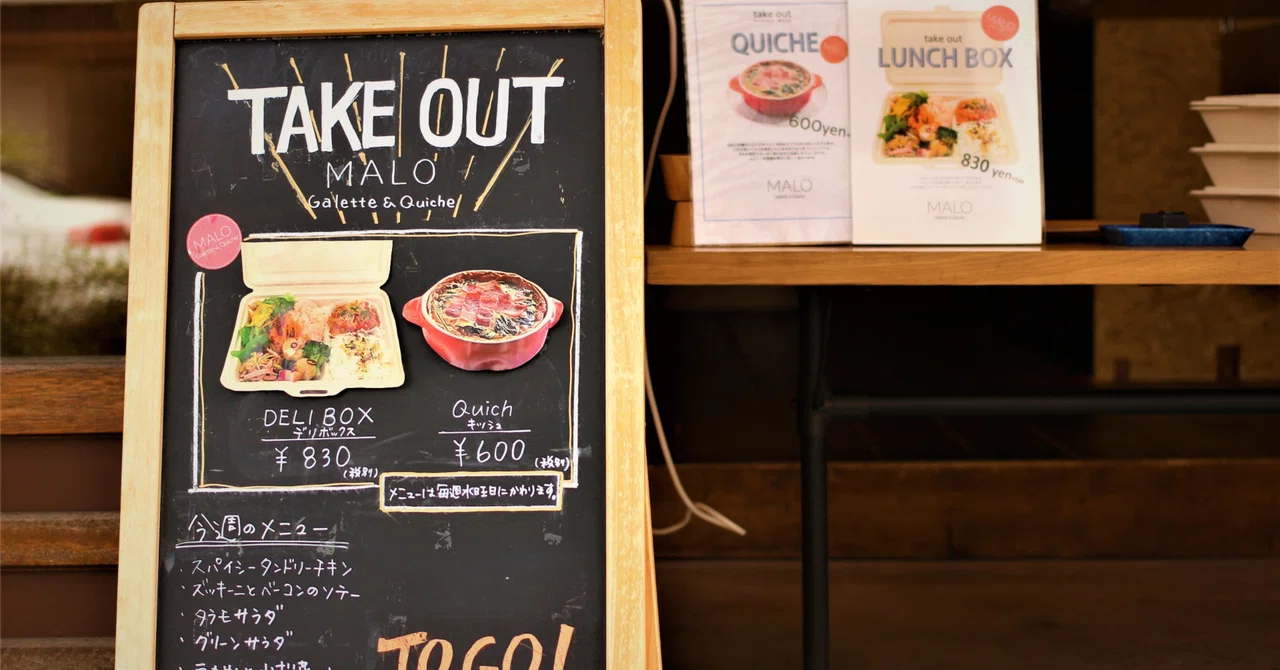 TAKE OUT
MALO
Galette & Quiche
MALO
DELI BOX
デリボックス
¥830
(税別)
Quich
キッシュ
¥600
(税別)
メニューは毎週水曜日にかわります。
今週のメニュー
・スパイシータンドリーチキン
・ズッキーニとベーコンのソテー
・タラモサラダ
・グリーンサラダ
TO GO!
take out
QUICHE
600yen
MALO
take out
LUNCH BOX
830 yen
MALO